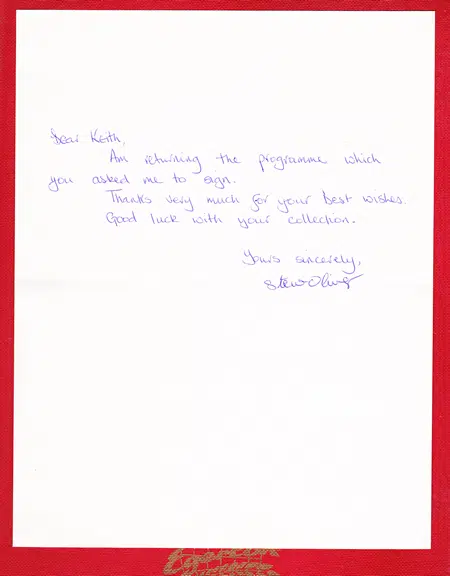 Dear Keith,
Am returning the programme which
you asked me to sign.
Thanks very much for your best wishes.
Good luck with your collection.
Yours sincerely,